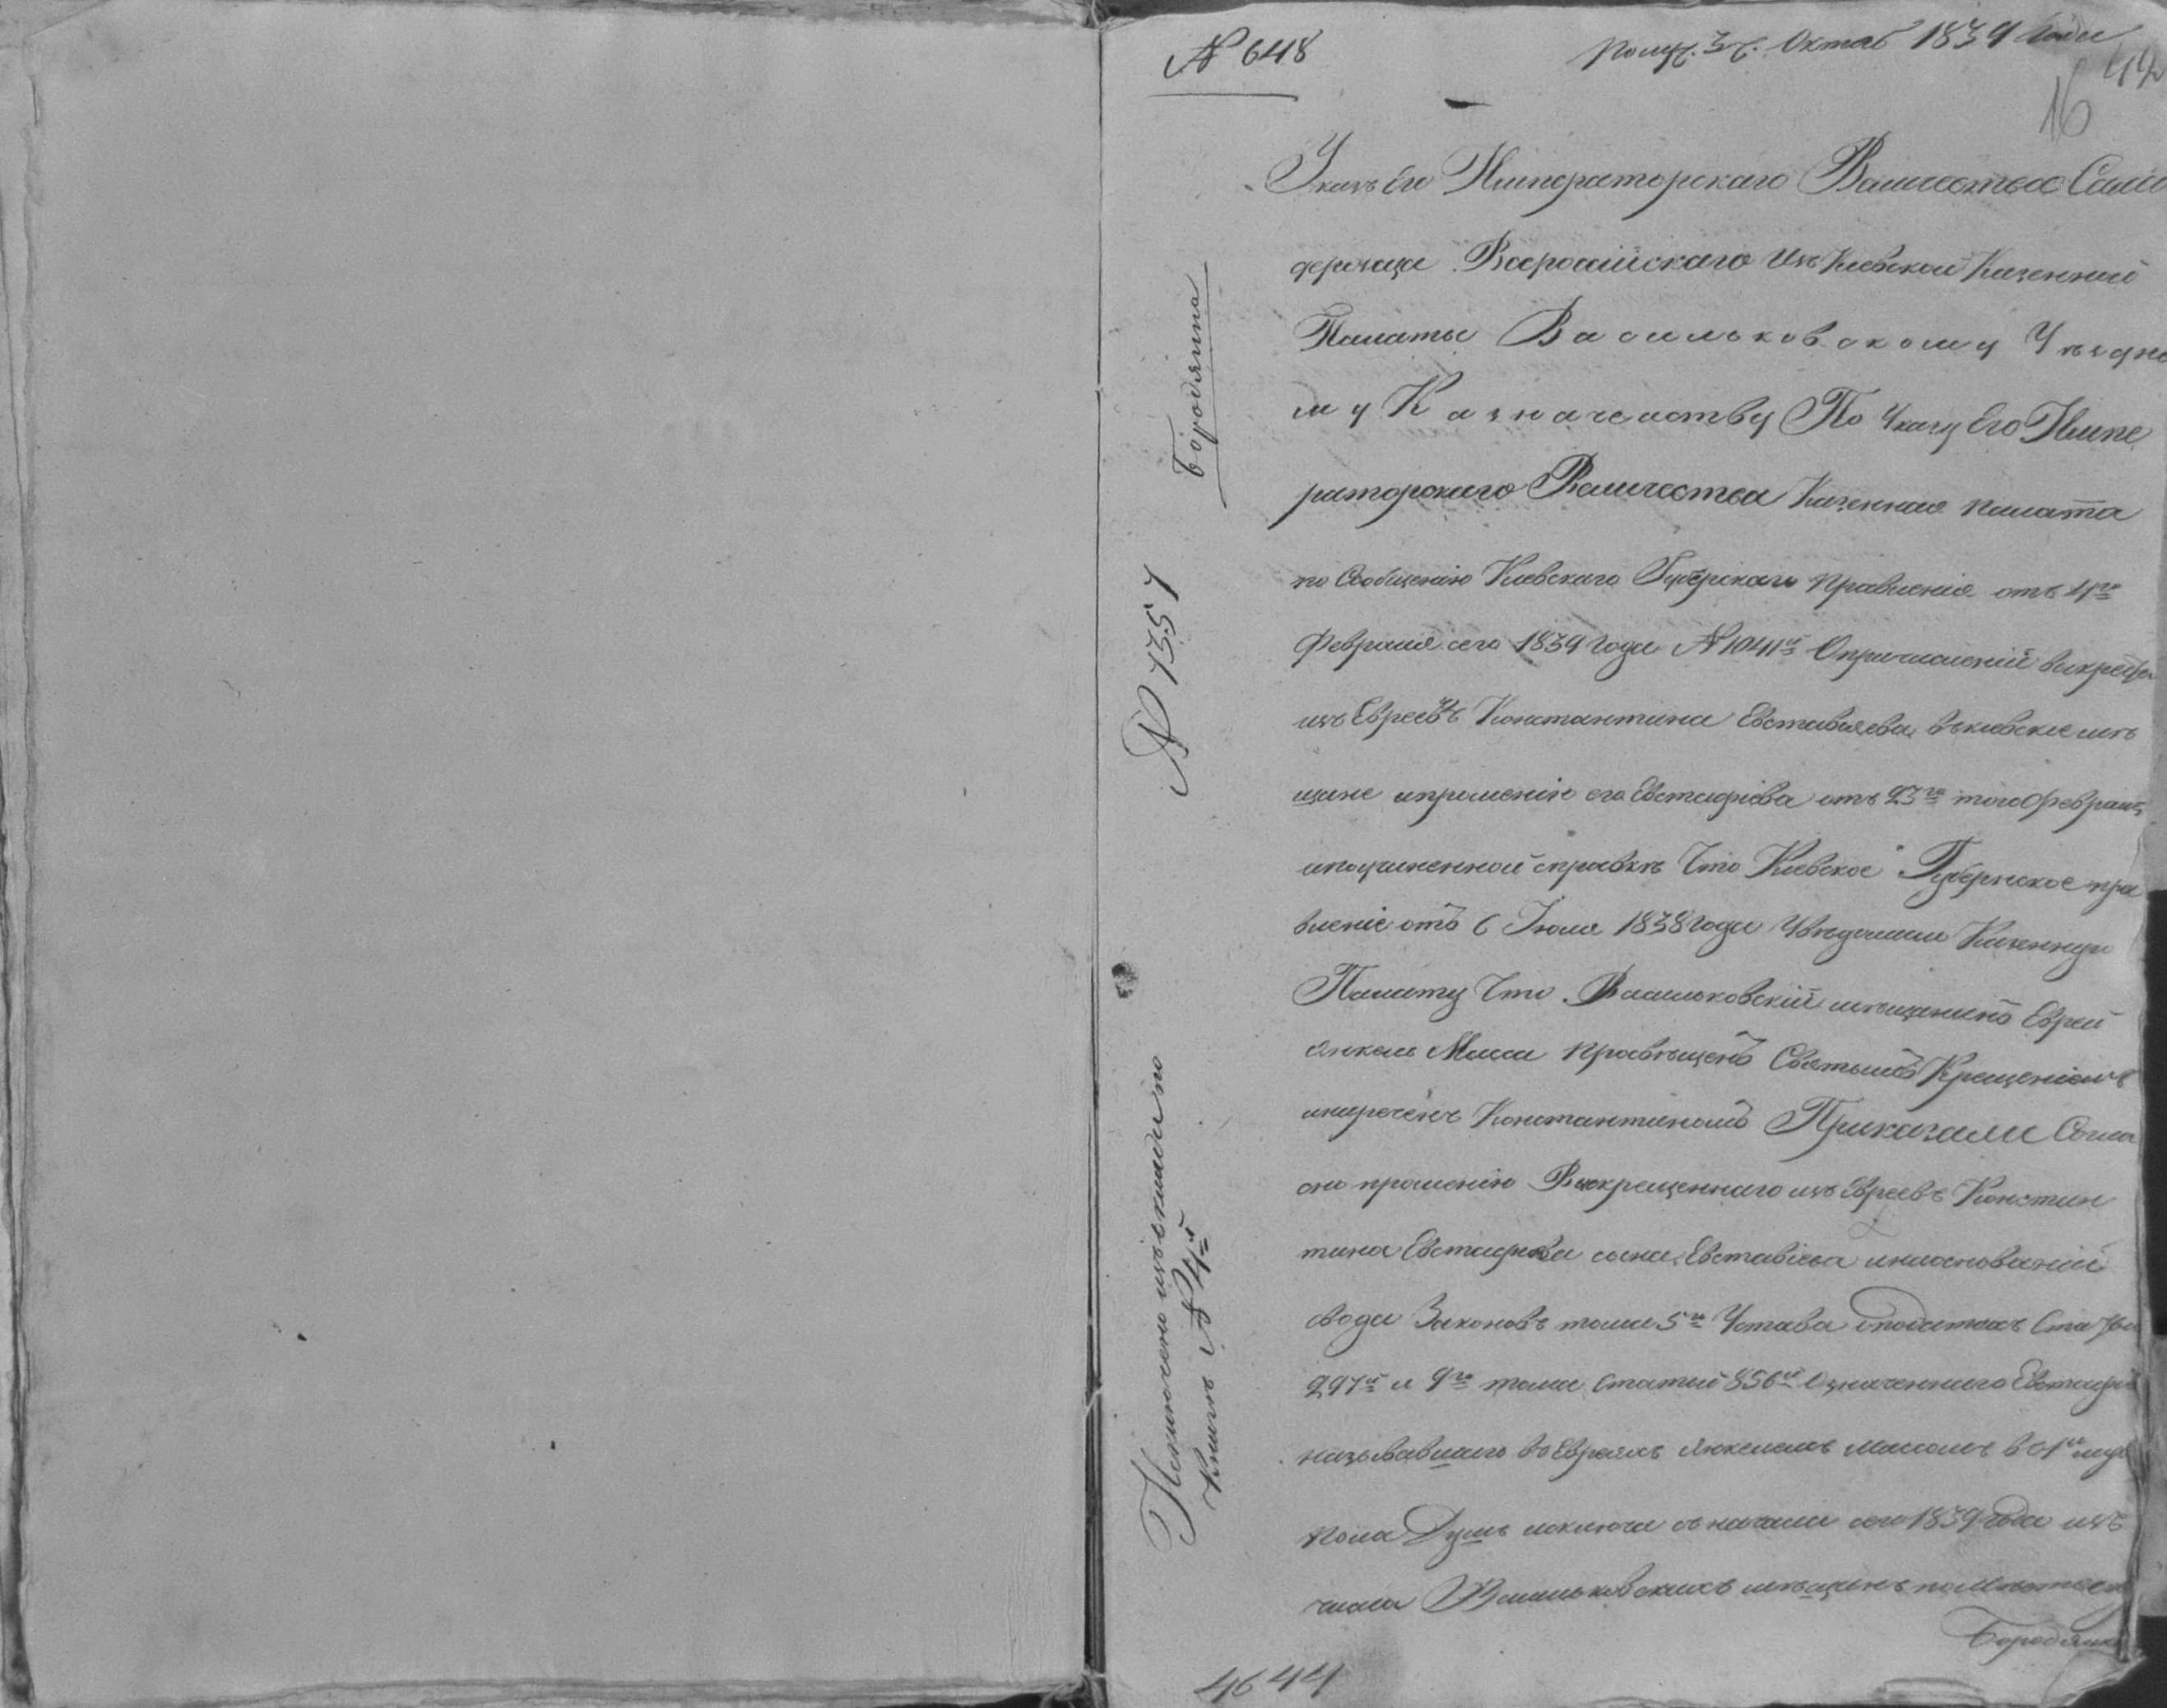 № 648
Получ. 3 Октяб 1839 года
42
16
Указъ Его Императорскаго Величества Само
держца Всероссійскаго изъ Кіевской Казенной
Палаты Васильковскому Уездно
му Казначеиству По Указу Его Импе
раторскаго Величества Казенная палата
по Сообщенію Киевскаго Губерскаго Правленія отъ 4го
Февраля сего 1839 года № 1041й О причислений выкреста
изъ Евреевъ Константина Евставиева, въ киевские мѣ
щане и прошенію его Евстафіева отъ 23го того Февраля
и по учиненной справкѣ Что Киевское Губернское пра
вление отъ 6 Июля 1838 года Увѣдомило Казенную
Палату Что Васильковскій мѣщанинъ Еврей
Янкель Просвѣщенъ Святымъ Крещеніемъ
и нареченъ Константиномъ Приказали Согла
сно прошенію Выкрещеннаго изъ Евреевъ Констан
тина Евстафіева сына Евставіева и на основаній
свода Законовъ тома 5го Устава о податяхъ Статьи
297й и 9го тома Статьи 856й Означеннаго Евстафие
называвшаго въ Евреяхъ Янкелемъ въ 1й муж
пола Душѣ исключа съ начала сего 1839 года изъ
числа Васильковскихъ мѣщанъ по Мѣстечку
Бородянка
4644
Бородянка
№ 1357
Исключено изъ оклада по
Книгѣ № 4й